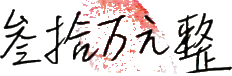 叁拾万元整